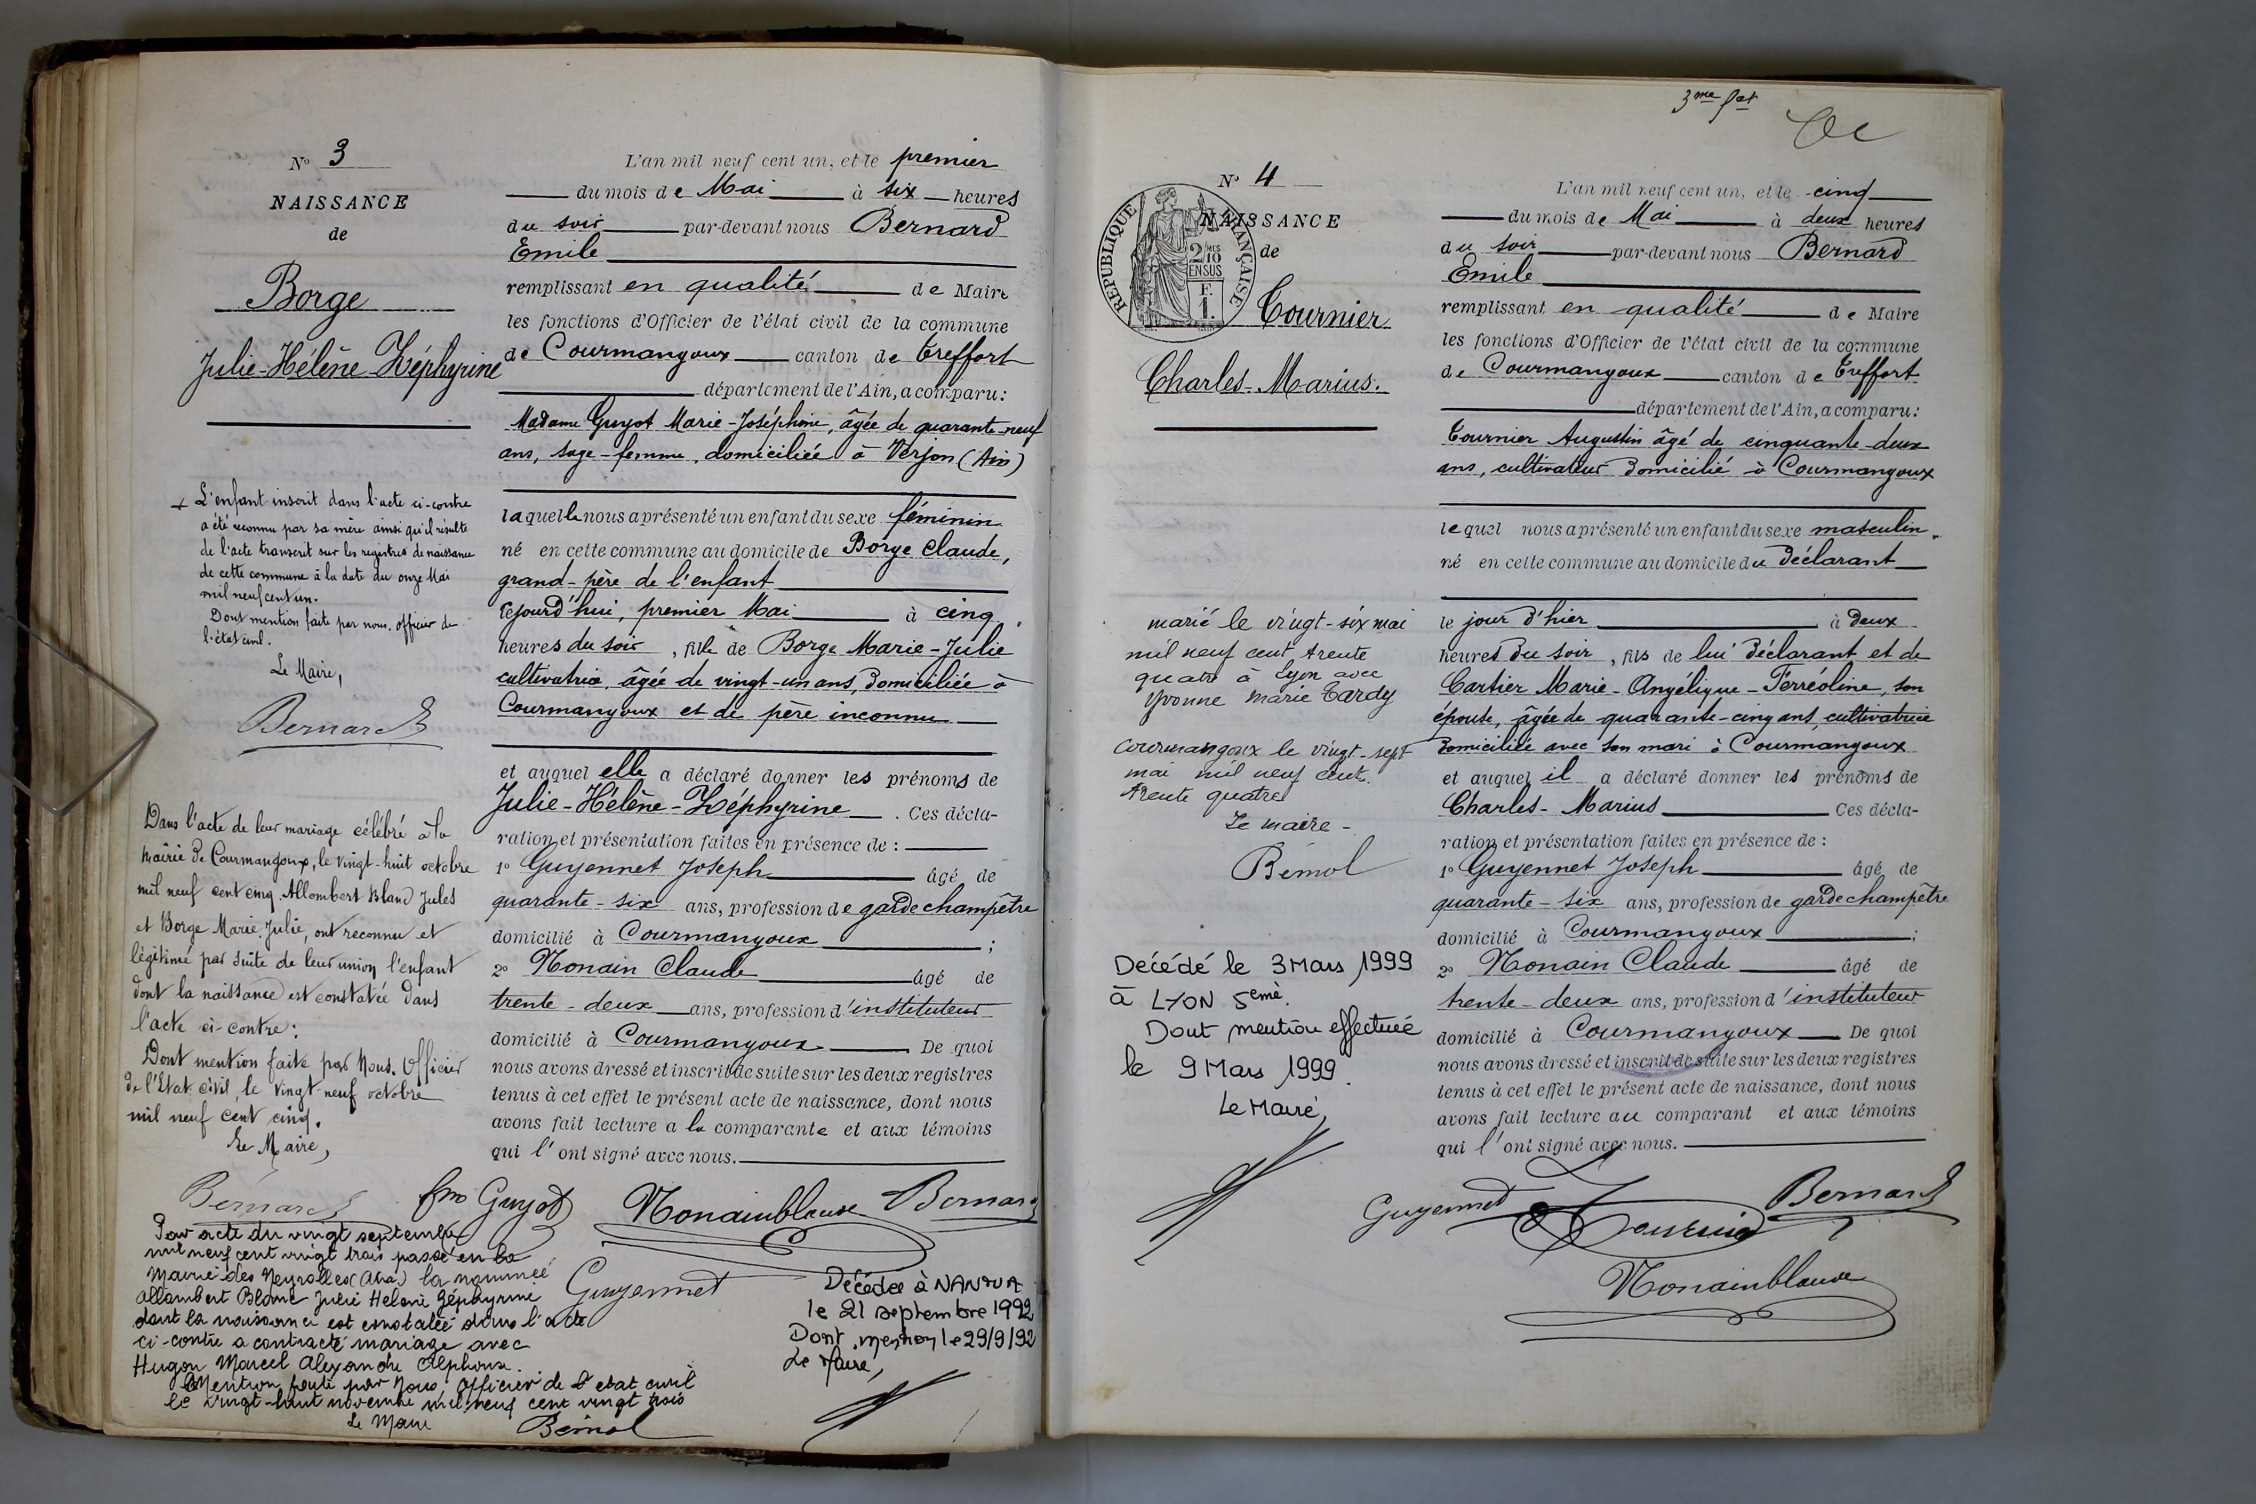 Nº 3
NAISSANCE
de
Borge
Julie-Hélène-Zéphyrine
+ L'enfant inscrit dans l'acte ci-contre
a été reconnu par sa mère ainsi qu'il résulte
de l'acte transcrit sur les registres de naissance
de cette commune à la date du onze Mai
mil neuf cent un.
Dont mention faite par nous, officier de
l'état civil.
Le Maire,
Bernard
Dans l'acte de leur mariage célébré à la
Mairie de Courmangoux, le vingt-huit octobre
mil neuf cent cinq. Allombert Blanc Jules
et Borge Marie Julie, ont reconnu et
légitimé par suite de leur union l'enfant
dont la naissance est constatée dans
l'acte ci-contre:
Dont mention faite par Nous. Officier
de l'Etat civil, le vingt-neuf octobre
mil neuf cent cinq.
Le Maire,
Bernard
Par acte du vingt septembre
mil neuf cent vingt trois passé en la
Mairie des Neyrolles (Ain) la nommée
Allombert Blanc Julie Hélène Zéphyrine
dont la naissance est constatée dans l'acte
ci-contre a contracté mariage avec
Hugon Marcel Alexandre Alphonse.
Mention faite par Nous, Officier de l'etat civil
le vingt-huit novembre mil neuf cent vingt trois
Le Maire
Bémol
L'an mil neuf cent un, et le premier
du mois de Mai à six heures
du soir par-devant nous Bernard
Emile
remplissant en qualité de Maire
les fonctions d'Officier de l'état civil de la commune
de Courmangoux canton de Treffort
département de l'Ain, a comparu:
Madame Guyot Marie-Joséphine, âgée de quarante-neuf
ans, sage-femme, domiciliée à Verjon (Ain)
laquelle nous a présenté un enfant du sexe féminin
né en cette commune au domicile de Borge Claude,
grand-père de l'enfant
cejourd'hui, premier Mai à cinq
heures du soir, fille de Borge Marie-Julie
cultivatrice, âgée de vingt-un ans, domiciliée à
Courmangoux et de père inconnu
et auquel elle a déclaré donner les prénoms de
Julie-Hélène-Zéphyrine. Ces décla-
ration et présentation faites en présence de :
1º Guyennet Joseph âgé de
quarante-six ans, profession de garde champêtre
domicilié à Courmangoux ;
2º Monain Claude âgé de
trente-deux ans, profession d'instituteur
domicilié à Courmangoux De quoi
nous avons dressé et inscrit de suite sur les deux registres
tenus à cet effet le présent acte de naissance, dont nous
avons fait lecture a la comparante et aux témoins
qui l'ont signé avec nous.
fme Guyot Monainblaude Bernard
Guyennet
Décédée à NANTUA
le 21 septembre 1992
Dont mention le 29/9/92
Le Maire,
3me fet
Nº 4
NAISSANCE
de
RÉPUBLIQUE FRANÇAISE
2/10
EN SUS
F.
1.
Tournier
Charles-Marius.
marié le vingt-six mai
mil neuf cent trente
quatre à Lyon avec
Yvonne Marie Tardy
Courmangoux le vingt-sept
mai mil neuf cent
trente quatre
Le maire -
Bémol
Décédé le 3 Mars 1999
à LYON 5eme.
Dont mention effectuée
le 9 Mars 1999.
Le Maire,
L'an mil neuf cent un, et le cinq
du mois de Mai à deux heures
du soir par-devant nous Bernard
Emile
remplissant en qualité de Maire
les fonctions d'Officier de l'état civil de la commune
de Courmangoux canton de Treffort
département de l'Ain, a comparu:
Tournier Augustin âgé de cinquante-deux
ans, cultivateur domicilié à Courmangoux
lequel nous a présenté un enfant du sexe masculin
né en cette commune au domicile du déclarant
le jour d'hier à deux
heures du soir, fils de lui déclarant et de
Cartier Marie-Angélique-Ferréoline, son
épouse, âgée de quarante-cinq ans, cultivatrice
domiciliée avec son mari à Courmangoux
et auquel il a déclaré donner les prénoms de
Charles-Marius Ces décla-
ration et présentation faites en présence de :
1º Guyennet Joseph âgé de
quarante-six ans, profession de garde champêtre
domicilié à Courmangoux ;
2º Monain Claude âgé de
trente-deux ans, profession d'instituteur
domicilié à Courmangoux De quoi
nous avons dressé et inscrit de suite sur les deux registres
tenus à cet effet le présent acte de naissance, dont nous
avons fait lecture au comparant et aux témoins
qui l'ont signé avec nous.
Guyennet Tournier Bernard
Monainblaude